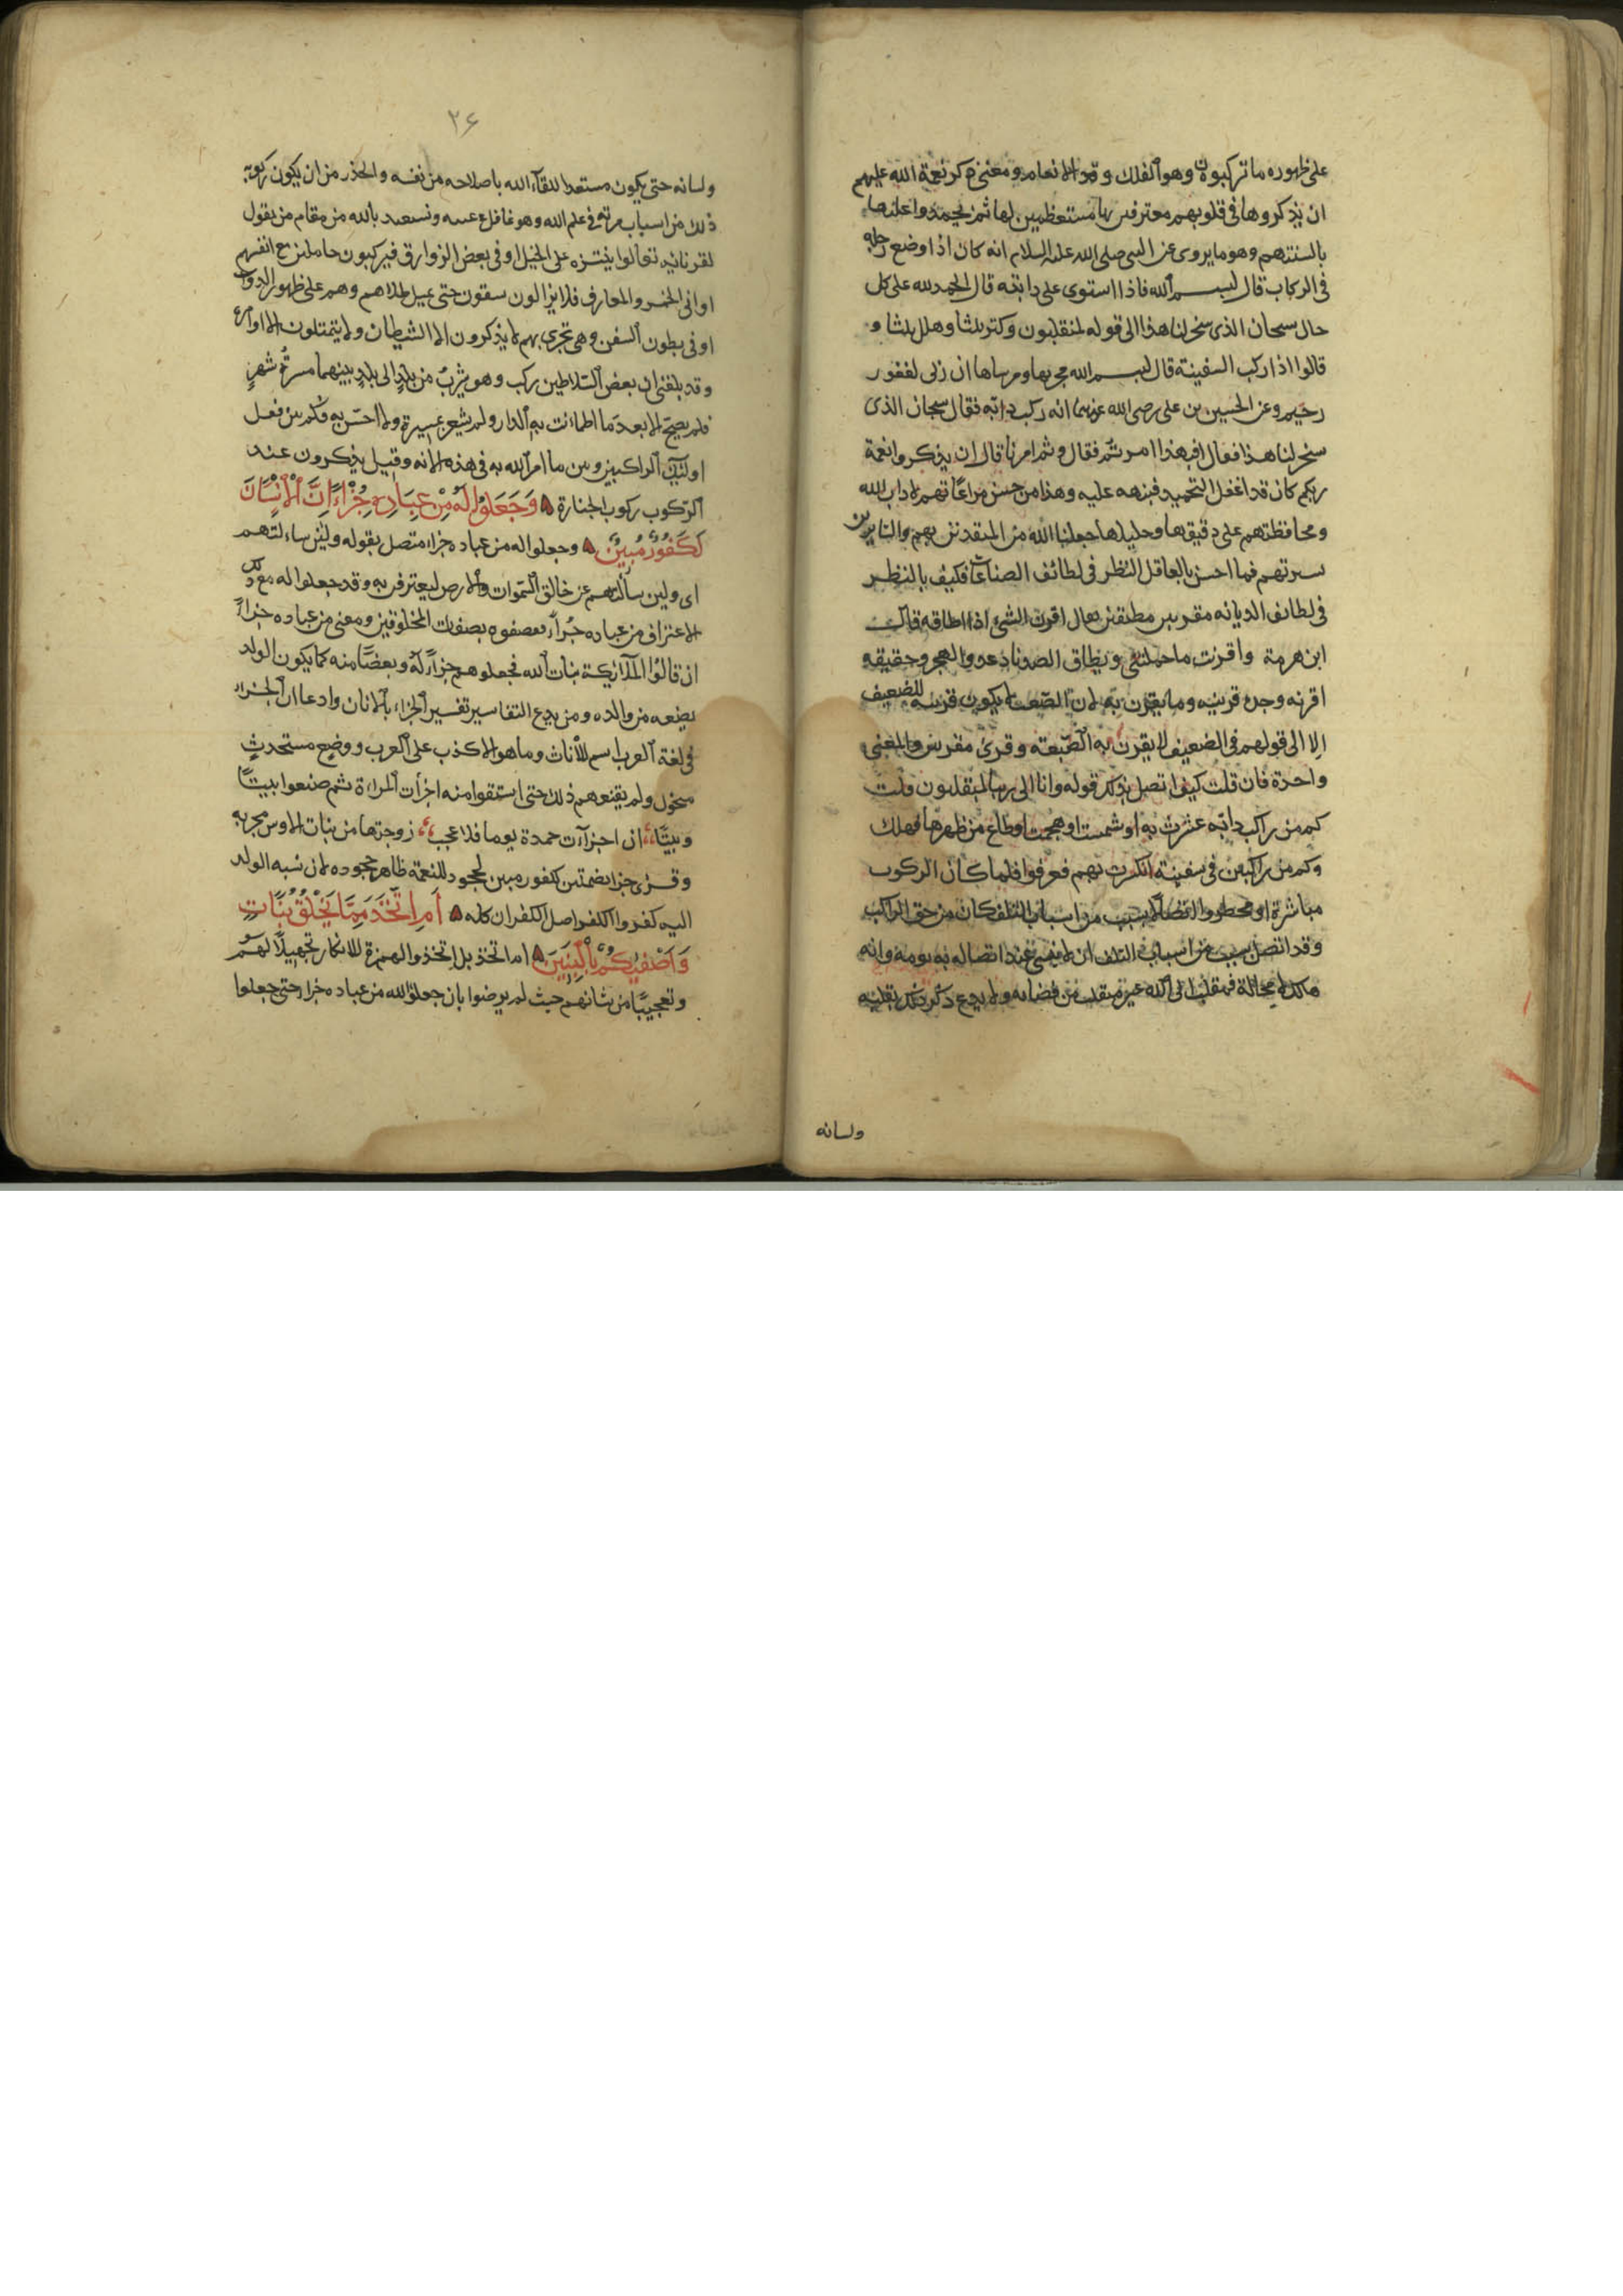 على ظهوره ما تركبون وهو الفلك والانعام ومعنى ذكر نعمة الله عليهم
ان يذكروها فى قلوبهم معترفين بها مستعظمين لها ثم يحمدوا عليها
بالسنتهم وهو ما يروى عن النبى صلى الله عليه السلام انه كان اذا وضع رجله
فى الركاب قال بسم الله فاذا استوى على دابته قال الحمد لله على كل
حال سبحان الذى سخر لنا هذا الى قوله لمنقلبون وكبر ثلثا وهلل ثلثا و
قالوا اذا ركب السفينة قال بسم الله مجريها ومرساها ان ربى لغفور
رحيم وعن الحسين بن على رضى الله عنهما انه ركب دابة فقال سبحان الذى
سخر لنا هذا فقال افبهذا امرتم فقال وبم امرنا قال ان يذكروا نعمة
ربكم كان قد اغفل التحميد فنبهه عليه وهذا من حسن مراعاتهم لاداب الله
ومحافظتهم على دقيقها وجليلها جعلنا الله من المقتدين بهم والسايرين
سيرتهم فما احسن بالعاقل النظر فى لطائف الصناعات فكيف بالنظر
فى لطائف الديانه مقرنين مطيقين يقال اقرن الشئ اذا اطاقه قال
ابن هرمة واقرنت ما حملتنى ويطاق الصد يا دعد والهجر وحقيقه
اقرنه وجده قرينته وما يقرن به لان الصعب لا يكون قرينه للضعيف
الا الى قولهم فى الضعيف لا يقرن به الصعبه وقرئ مقرنين والمعنى
واحدة فان قلت كيف اتصل بذلك قوله وانا الى ربنا لمنقلبون قلت
كم من راكب دابه عثرت به او شمست او هجمت او طاح من ظهرها فهلك
وكم من راكبين فى سفينة انكسرت بهم فغرقوا فلما كان الركوب
مباشرة او مخطور واتصالا بسبب من اسباب التلف كان من حق الراكب
وقد اتصل بسبب من اسباب التلف ان لا ينسى عند اتصاله به يومه وانه
هالك لا محالة فمنقلب الى الله غير منقلب من قضائه ولا يدع ذكر ذلك بقلبه
ولسانه
٢۶
ولسانه حتى يكون مستعدا للقاء الله باصلاحه من نفسه والحذر من ان يكون ركوبه
ذلك من اسباب موته فى علم الله وهو غافل عنه ونستعيذ بالله من مقام من يقول
لقرنائه تعالوا نتنزه على الخيل او فى بعض الزوارق فيركبون حاملين مع انفسهم
اوانى الخمر والمعازف فلا يزالون يسقون حتى يميل طلاهم وهم على ظهور الدواب
او فى بطون السفن وهى تجرى بهم لا يذكرون الا الشيطان ولا يتمثلون الا اوامره
وقد بلغنى ان بعض السلاطين ركب وهو يشرب من بلد الى بلد بينهما مسيرة شهر
فلم يصح الا بعد ما اطمانت به الدار ولم يشعر بمسيره ولا احس به فكم بين فعل
اولئك الراكبين وبين ما امر الله به فى هذه الايه وقيل يذكرون عند
الركوب ركوب الجنازة وَجَعَلُوا لَهُ مِنْ عِبَادِهِ جُزْءًا اِنَّ الْاِنْسَانَ
لَكَفُورٌ مُبِينٌ وجعلوا له من عباده جزاء متصل بقوله ولئن سألتهم
اى ولين سألتهم عن خالق السموات والارض ليعترفن به وقد جعلوا له مع ذلك
الاعتراف من عباده جزأ فوصفوه بصفات المخلوقين ومعنى من عباده جزأ
ان قالوا الملائكة بنات الله فجعلوهم جزأ له وبعضا منه كما يكون الولد
بضعه من والده ومن بدع التفاسير تفسير الجزاء بالاناث وادعا ان الجزء
فى لغة العرب اسم للاناث وما هو الا كذب على العرب ووضع مستحدث
منحول ولم يقنعهم ذلك حتى اشتقوا منه اجزأت المراة ثم صنعوا بيتا
وبيتا ان اجزأت حمدة يوما فلا عجب زوجتها من بنات الاوس مجزيه
وقرئ جزا بضمتين لكفور مبين لجحود للنعمة ظاهر جحوده لان نسبه الولد
اليه كفر والكفر اصل الكفران كله اَمِ اتَّخَذَ مِمَّا يَخْلُقُ بَنَاتٍ
وَاَصْفٰيكُمْ بِالْبَنِينَ ام اتخذ بل اتخذ والهمزة للانكار تجهيلا لهم
وتعجيبا من شانهم حيث لم يرضوا بان جعلوا لله من عباده جزا حتى جعلوا